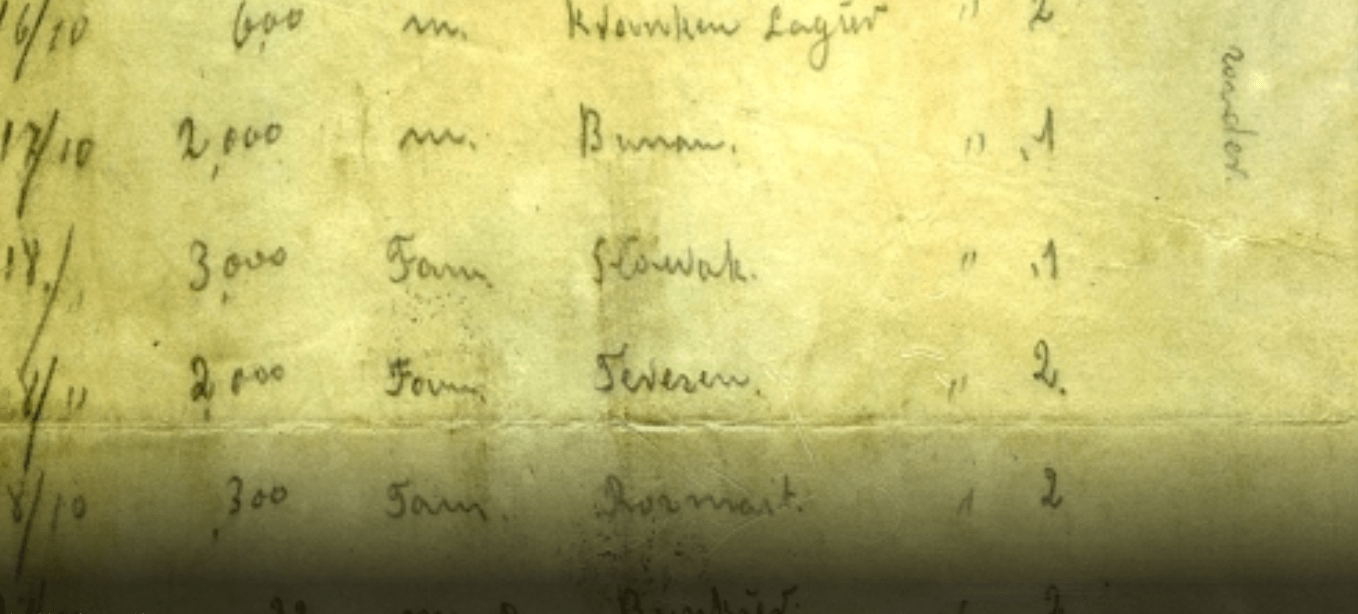 16/10 600 m. Kranken Lager " 2
17/10 2,000 m. Bunau. " 1
18./" 3,000 Fam. Slowak. " 1
8/" 2,000 Fam. Teresen. " 2.
8/10 300 Fam. " 2
2
sonder.